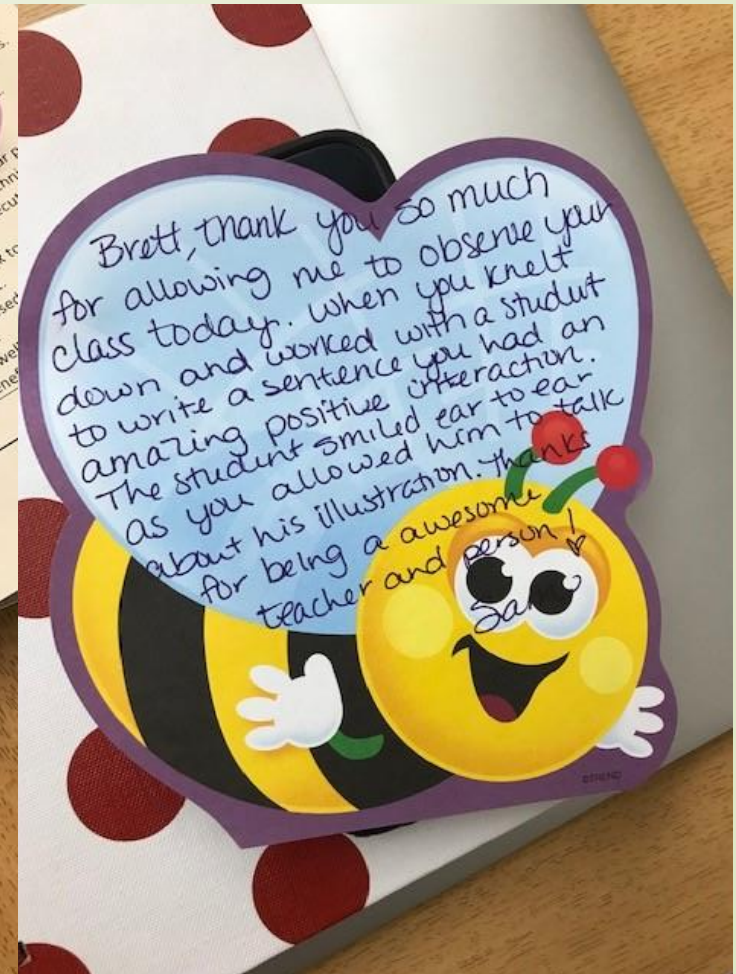 Brett, thank you so much
for allowing me to observe your
class today. When you knelt
down and worked with a student
to write a sentence you had an
amazing positive interaction.
The student smiled ear to ear
as you allowed him to talk
about his illustration. Thanks
for being a awesome
teacher and person!
©TREND